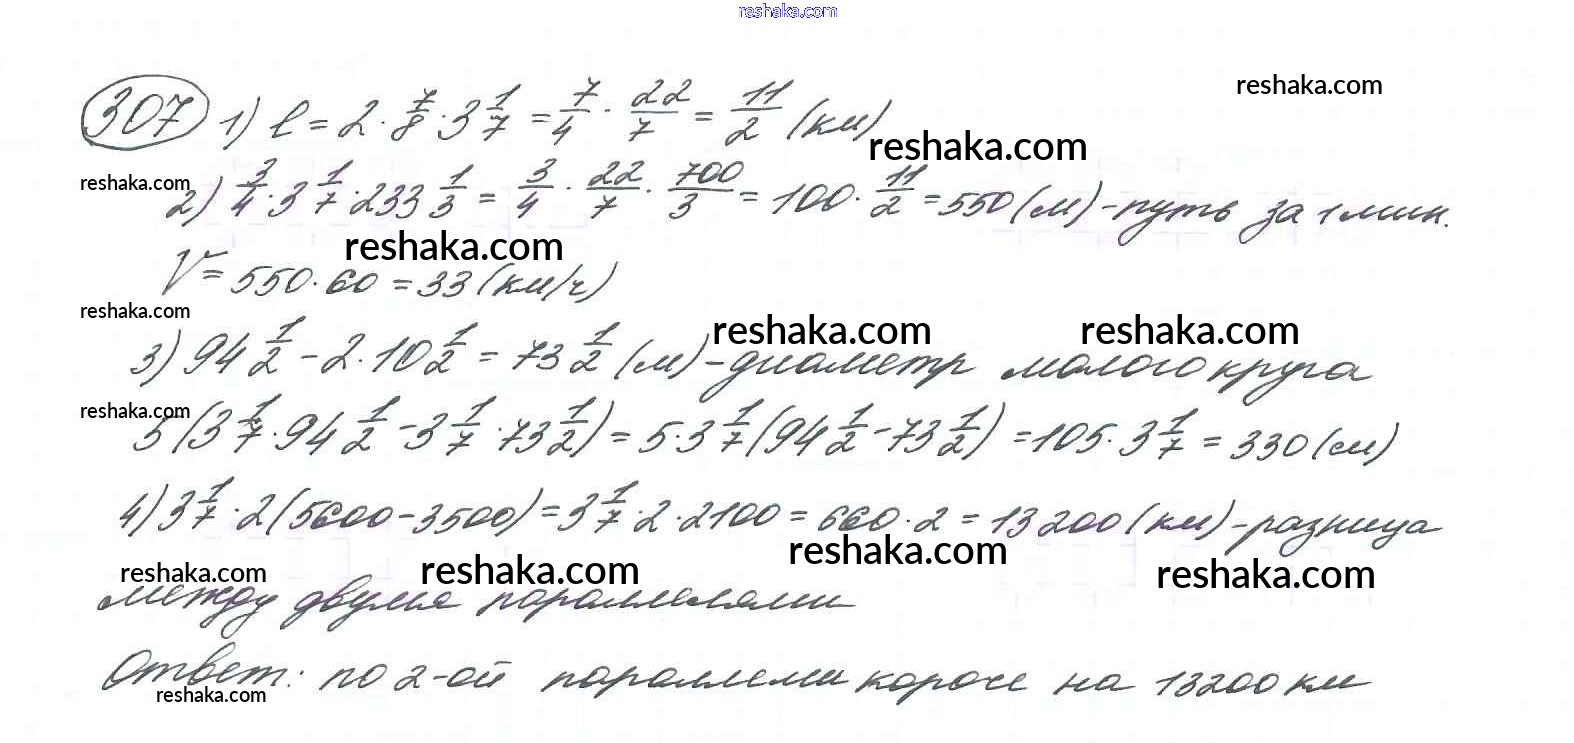 reshaka.com
307 1) l = 2 · 7/8 · 3 1/7 = 7/4 · 22/7 = 11/2 (км)
reshaka.com
reshaka.com
reshaka.com
2) 3/4 · 3 1/7 · 233 1/3 = 3/4 · 22/7 · 700/3 = 100 · 11/2 = 550 (м) - путь за 1 мин.
reshaka.com
V = 550 · 60 = 33 (км/ч)
reshaka.com
reshaka.com
reshaka.com
3) 94 1/2 - 2 · 10 1/2 = 73 1/2 (м) - диаметр малого круга
reshaka.com
5 (3 1/7 · 94 1/2 - 3 1/7 · 73 1/2) = 5 · 3 1/7 (94 1/2 - 73 1/2) = 105 · 3 1/7 = 330 (м)
4) 3 1/7 · 2 (5600 - 3500) = 3 1/7 · 2 · 2100 = 660 · 2 = 13200 (км) - разница
reshaka.com
reshaka.com
reshaka.com
reshaka.com
между двумя параллелями
Ответ: по 2-ой параллели короче на 13200 км
reshaka.com